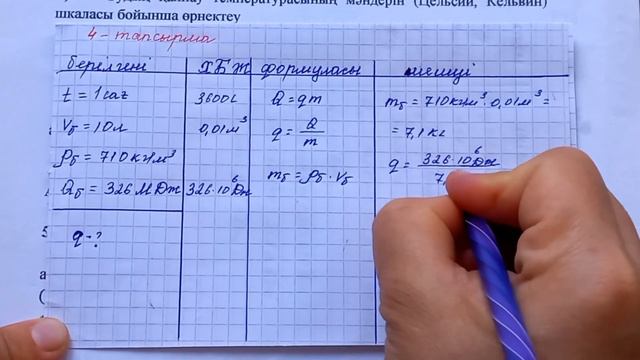 температурасының мәндерін (Цельсий, Кельвин)
шкаласы бойынша өрнектеу
4-тапсырма
берілгені ХБЖ формуласы шешуі
t = 1 сағ 3600 с Q = qm mб = 710 кг/м³ · 0,01 м³ =
Vб = 10 л 0,01 м³ q = Q/m = 7,1 кг
ρб = 710 кг/м³ mб = ρб · Vб q = 326·10⁶ Дж / 7,
Qб = 326 МДж 326·10⁶ Дж
q - ?